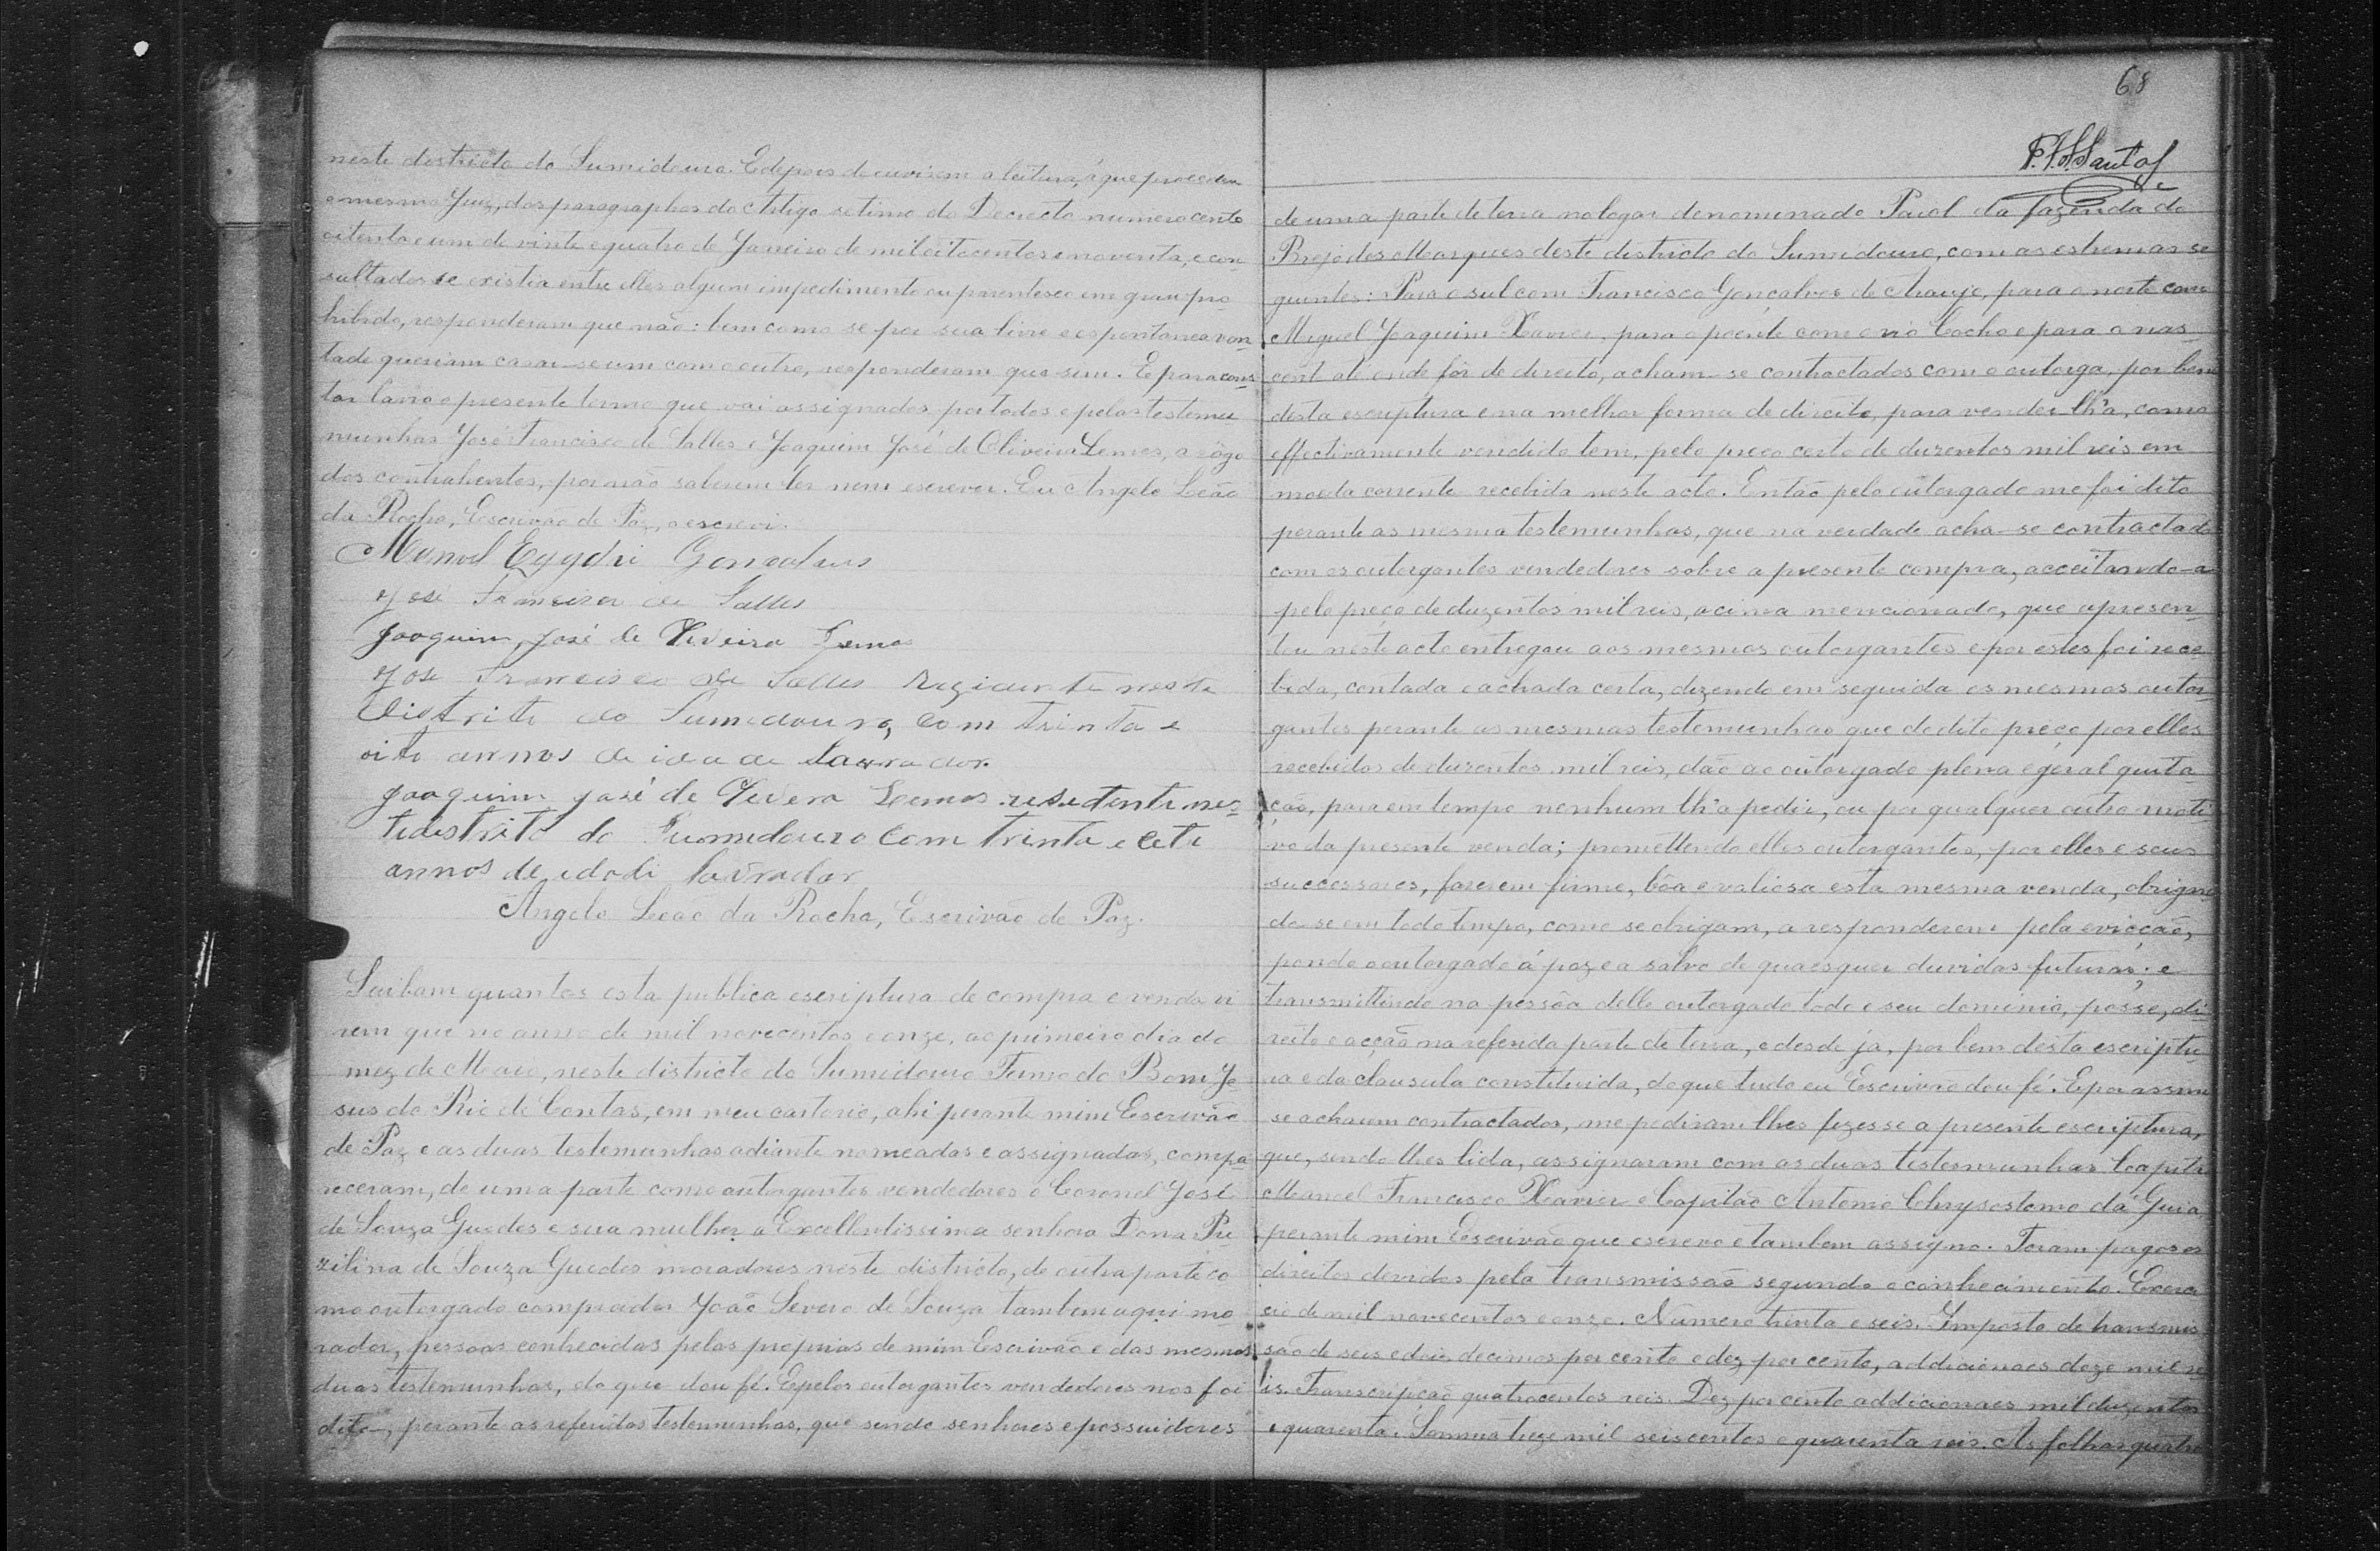 neste districto do Sumidouro. E depois de ouvirem a leitura, á que procedeu
o mesmo Juiz, dos paragraphos do Artigo setimo do Decreto numero cento
oitenta e um de vinte e quatro de Janeiro de mil oitocentos e noventa, e con-
sultados se existia entre elles algum impedimento ou parentesco em grau pro
hibido, responderam que não: bem como se por sua livre e espontanea von-
tade queriam casar-se um com o outro, responderam que sim. E para cons-
tar lavro o presente termo que vai assignados por todos e pelas testemu
munhas José Francisco de Salles e Joaquim José de Oliveira Lemos, a rôgo
dos contrahentes, por não saberem ler nem escrever. Eu Angelo Leão
da Rocha, Escrivão de Paz, o escrevi.
Manoel Egydio Gonçalves
José Francisco de Salles
Joaquim José de Oliveira Lemos
José Francisco de Salles rezidente neste
distrito do Sumidouro, com trinta e
oito annos de idade lavrador.
Joaquim José de Oliveira Lemos residente nes-
te distrito do Sumidouro com trinta e cete
annos de idade lavrador
Angelo Leão da Rocha, Escrivão de Paz.
Saibam quantos esta publica escriptura de compra e venda vi
rem que no anno de mil novecentos e onze, ao primeiro dia do
mez de Maio, neste districto do Sumidouro Termo do Bom Je
sus do Rio de Contas, em meu cartorio, ahi perante mim Escrivão
de Paz e as duas testemunhas adiante nomeadas e assignadas, compa-
receram, de uma parte como outorgantes vendedores o Coronel José
de Souza Guedes e sua mulher a Excellentissima senhora Dona Pu
zilina de Souza Guedes moradores neste districto, de outra parte co
mo outorgado comprador João Severo de Souza tambem aqui mo
rador, pessoas conhecidas pelas proprias de mim Escrivão e das mesmas
duas testemunhas, do que dou fé. E pelos outorgantes vendedores nos foi
dito, perante as referidas testemunhas, que sendo senhores e possuidores
68
de uma parte de terra no logar denominado Paiol da fazenda do
Brejo dos Marques deste districto do Sumidouro, com as estremas se
guintes: Para o sul com Francisco Gonçalves de Araujo, para o norte com
Miguel Joaquim Xavier, para o poente com o rio Cocho e para o nas-
cent até onde fôr de direito, acham-se contractados com o outorga, por bem
desta escriptura e na melhor forma de direito, para vender lh'a, como
effectivamente vendido tem, pelo preço certo de duzentos mil reis em
moeda corrente recebida neste acto. Então pelo outorgado me foi dito
perante as mesma testemunhas, que na verdade acha-se contractado
com os outorgantes vendedores sobre a presente compra, acceitando-a
pelo preço de duzentos mil reis, acima mencionado, que apresen-
tou neste acto entregou aos mesmos outorgantes e por estes foi rece-
bida, contada e achada certa, dizendo em seguida os mesmos outor-
gantes perante as mesmas testemunhas que do dito preço por elles
recebidos de duzentos mil reis, dão ao outorgado plena e geral quita-
ção, para em tempo nenhum lh'o pedir, ou por qualquer outro moti-
vo da presente venda; promettendo elles outorgantes, por elles e seus
successores, fazerem firme, bôa e valiosa esta mesma venda, obrigan
do se em todo tempo, como se obrigam, a responderem pela evicção,
pondo o outorgado á paz e a salvo de quaesquer duvidas futuras; e
transmittindo na pessôa delle outorgado todo o seu dominio, posse, di-
reito e acção na referida parte de terra, e desde já, por bem desta escriptu-
ra e da clausula constituida, do que tudo eu Escrivão dou fé. E por assim
se acharem contractados, me pediram lhes fizesse a presente escriptura,
que, sendo lhes lida, assignaram com as duas testemunhas Capitão
Manoel Francisco Xavier e Capitão Antonio Chrysostomo da Guia,
perante mim Escrivão que escrevo e tambem assigno. Foram pagos os
direitos devidos pela transmissão segundo o conhecimento. Exerci
cio de mil novecentos e onze. Numero trinta e seis. Imposto de transmis
são de seis e dois decimos por cento e dez por cento, addicionaes doze mil re
is. Transcripção quatrocentos reis. Dez por cento addicionaes mil duzentos
e quarenta. Somma treze mil seiscentos e quarenta reis. As folhas quatro